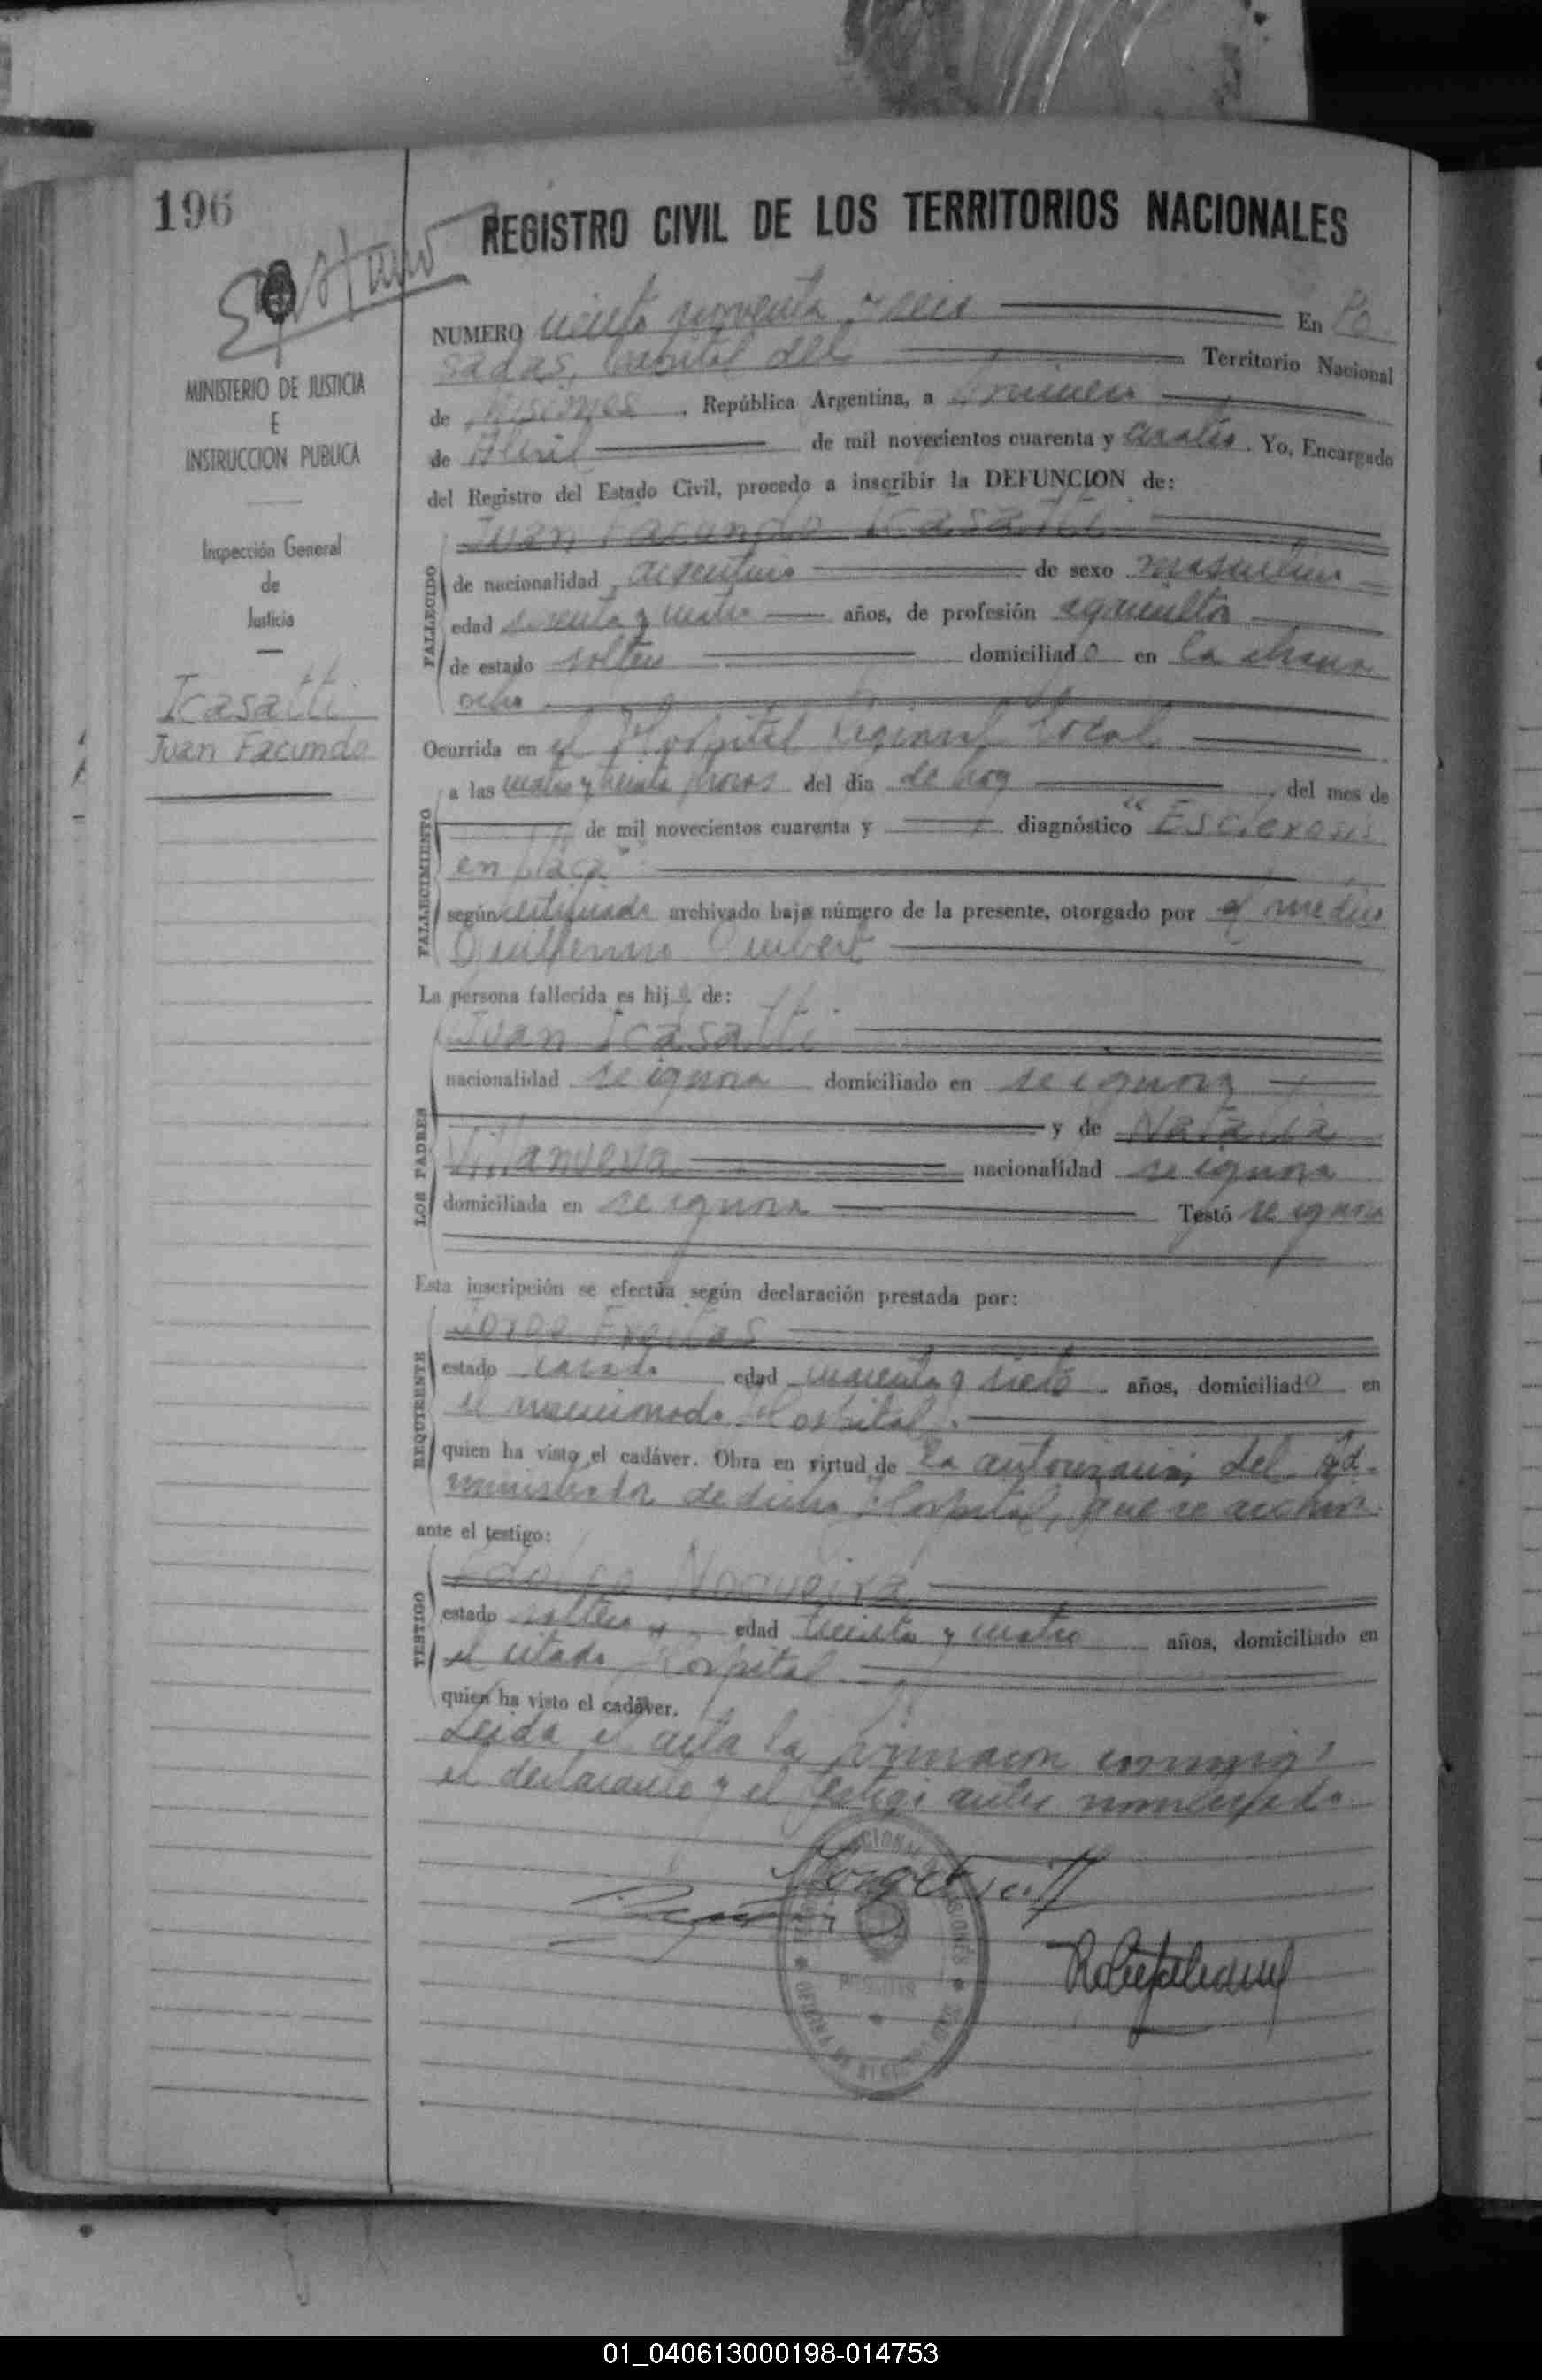 196
REGISTRO CIVIL DE LOS TERRITORIOS NACIONALES
NUMERO ciento noventa y seis En Po
sadas, Capital del Territorio Nacional
de Misiones, República Argentina, a primero
de Abril de mil novecientos cuarenta y cuatro. Yo, Encargado
del Registro del Estado Civil, procedo a inscribir la DEFUNCION de:
MINISTERIO DE JUSTICIA
E
INSTRUCCION PUBLICA
Inspección General
de
Justicia
Icasatti
Juan Facundo
FALLECIDO
Juan Facundo Icasatti
de nacionalidad argentino de sexo masculino
edad y cuatro años, de profesión agricultor
de estado soltero domiciliado en la chacra
ocho
Ocurrida en el Hospital Regional local
FALLECIMIENTO
a las cuatro y treinta horas del día de hoy del mes de
de mil novecientos cuarenta y diagnóstico "Esclerosis
en placa"
según certificado archivado bajo número de la presente, otorgado por el médico
Guillermo
La persona fallecida es hijo de:
LOS PADRES
Juan Icasatti
nacionalidad se ignora domiciliado en se ignora
y de Natalia
Villanueva nacionalidad se ignora
domiciliada en se ignora Testó se ignora
Esta inscripción se efectúa según declaración prestada por:
REQUIRENTE
Jorge Freitas
estado casado edad cuarenta y siete años, domiciliado en
el mencionado Hospital.
quien ha visto el cadáver. Obra en virtud de la autorización del Ad-
ministrador de dicho Hospital, que se archiva
ante el testigo:
TESTIGO
Nogueira
estado soltero edad treinta y cuatro años, domiciliado en
el citado Hospital
quien ha visto el cadáver.
Leida el acta la firmaron conmigo
el declarante y el testigo antes nombrado
01_040613000198-014753